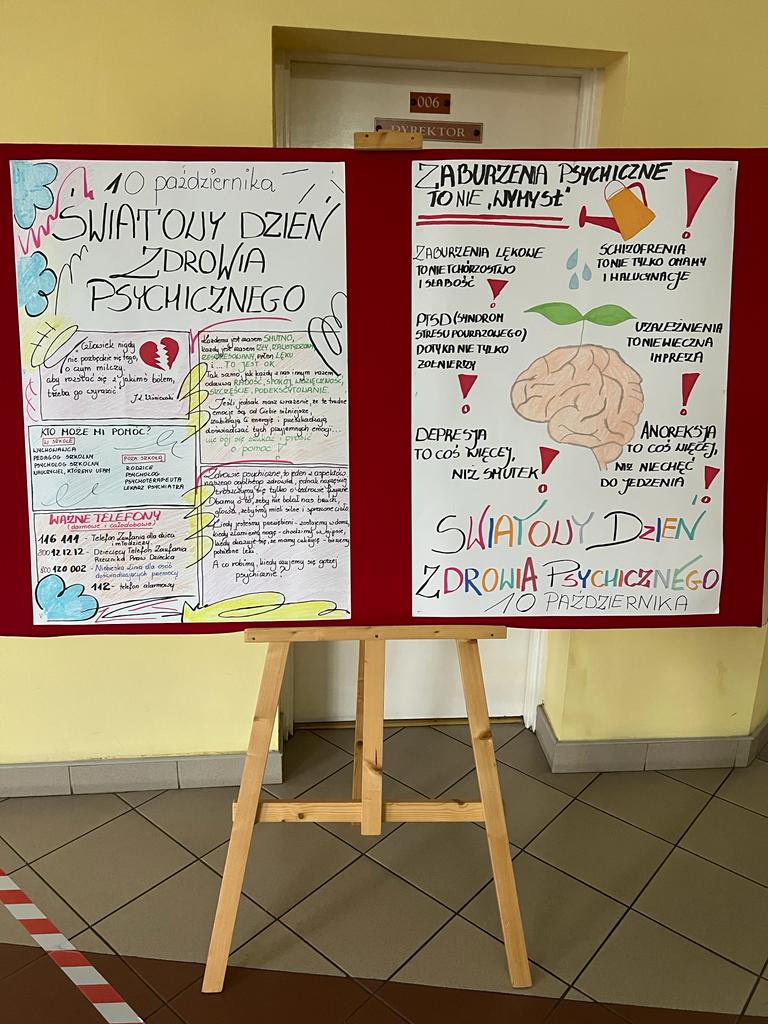 006
DYREKTOR
10 października
ŚWIATOWY DZIEŃ
ZDROWIA
PSYCHICZNEGO
Człowiek nigdy
nie pozbędzie się tego,
o czym milczy.
aby rozstać się z jakimś bólem,
trzeba go wyrazić
J.L. Wiśniewski
KTO MOŻE MI POMÓC?
W SZKOLE
WYCHOWAWCA
PEDAGOG SZKOLNY
PSYCHOLOG SZKOLNY
NAUCZYCIEL, KTÓREMU UFAM
POZA SZKOŁĄ
RODZICE
PSYCHOLOG
PSYCHOTERAPEUTA
LEKARZ PSYCHIATRA
WAŻNE TELEFONY
(darmowe i całodobowe)
116 111 - Telefon Zaufania dla dzieci
i młodzieży
800 12.12.12 - Dziecięcy Telefon Zaufania
Rzecznika Praw Dziecka
800 120 002 - Niebieska Linia dla osób
doświadczających przemocy
112 - telefon alarmowy
Każdemu jest czasem SMUTNO,
każdy jest czasem ZŁY,
pełen LĘKU
i ... TO JEST OK
Tak samo, jak każdy z nas innym razem
odczuwa RADOŚĆ, SPOKÓJ, WDZIĘCZNOŚĆ,
SZCZĘŚCIE, PODEKSCYTOWANIE.
Jeśli jednak masz wrażenie, że te trudne
emocje są od Ciebie silniejsze,
zabierają Ci energię i przeszkadzają
doświadczać tych przyjemnych emocji...
nie bój się szukać i prosić
o pomoc!
Zdrowie psychiczne, to jeden z aspektów
naszego ogólnego zdrowia, jednak najczęściej
troszczymy się tylko o zdrowie fizyczne.
Dbamy o to, żeby nie bolał nas brzuch,
głowa, żebyśmy mieli silne i sprawne ciało.
Kiedy jesteśmy przeziębieni - zostajemy w domu,
kiedy złamiemy nogę - chodzimy w gipsie,
kiedy okazuje się, że mamy cukrzycę - bierzemy
potrzebne leki.
A co robimy, kiedy czujemy się gorzej
psychicznie?
ZABURZENIA PSYCHICZNE
TO NIE „WYMYSŁ"
ZABURZENIA LĘKOWE
TO NIE TCHÓRZOSTWO
I SŁABOŚĆ
SCHIZOFRENIA
TO NIE TYLKO OMAMY
I HALUCYNACJE
PTSD (SYNDROM
STRESU POURAZOWEGO)
DOTYKA NIE TYLKO
ŻOŁNIERZY
UZALEŻNIENIA
TO NIE WIECZNA
IMPREZA
DEPRESJA
TO COŚ WIĘCEJ,
NIŻ SMUTEK
ANOREKSJA
TO COŚ WIĘCEJ,
NIŻ NIECHĘĆ
DO JEDZENIA
ŚWIATOWY DZIEŃ
ZDROWIA PSYCHICZNEGO
10 PAŹDZIERNIKA